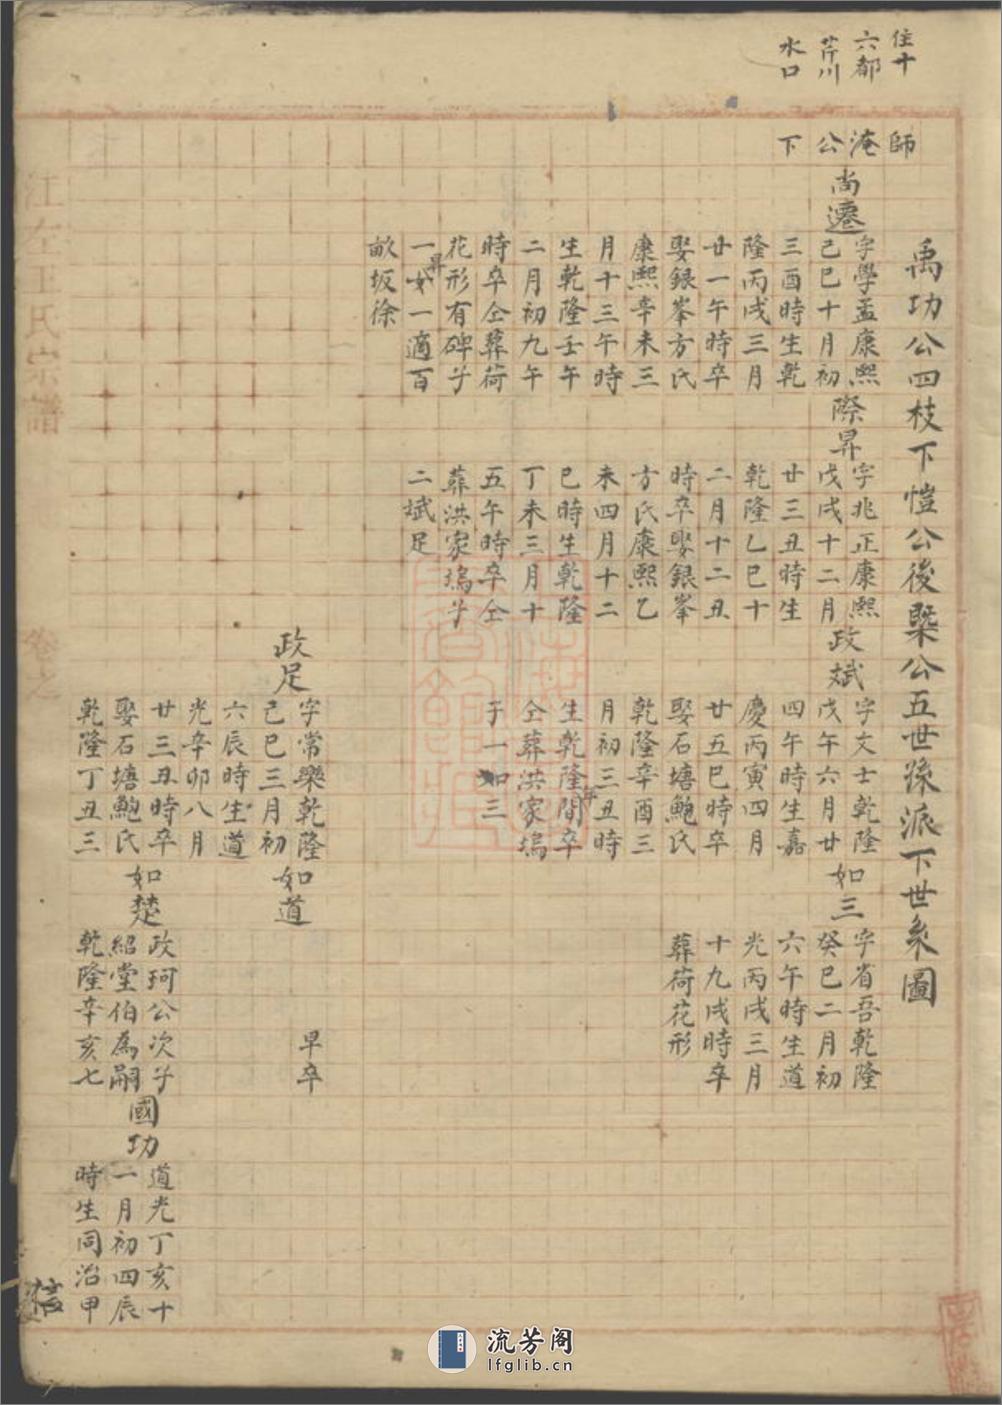 住十
六都
芹川
水口
禹功公四枝下愷公後槩公五世孫派下世系圖
師淹公下
尚遷
字學孟康熙
己巳十月初
三酉時生乾
隆丙戌三月
廿一午時卒
娶銀峯方氏
康熙辛未三
月十三午時
生乾隆壬午
二月初九午
時卒仝葬荷
花形有碑子
一昇女一適百
畝坂徐
際昇
字兆正康熙
戊戌十二月
廿三丑時生
乾隆乙巳十
二月十二丑
時卒娶銀峯
方氏康熙乙
未四月十二
巳時生乾隆
丁未三月十
五午時卒仝
葬洪家塢子
二斌足
政斌
字文士乾隆
戊午六月廿
四午時生嘉
慶丙寅四月
廿五巳時卒
娶石塘鮑氏
乾隆辛酉三
月初三丑時
生乾隆間年卒
仝葬洪家塢
子一如三
如三
字省吾乾隆
癸巳二月初
六午時生道
光丙戌三月
十九戌時卒
葬荷花形
政足
字常樂乾隆
己巳三月初
六辰時生道
光辛卯八月
廿三丑時卒
娶石塘鮑氏
乾隆丁丑三
如道
早卒
如楚
政珂公次子
紹堂伯為嗣
乾隆辛亥七
國功
道光丁亥十
一月初四辰
時生同治甲
信
流芳阁
lfglib.cn